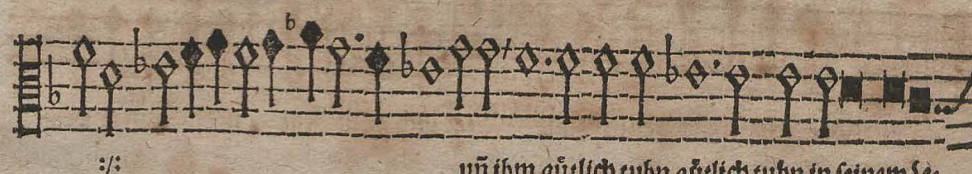 :/: uñ ihm guͤtlich tuhn guͤtlich tuhn in seinem